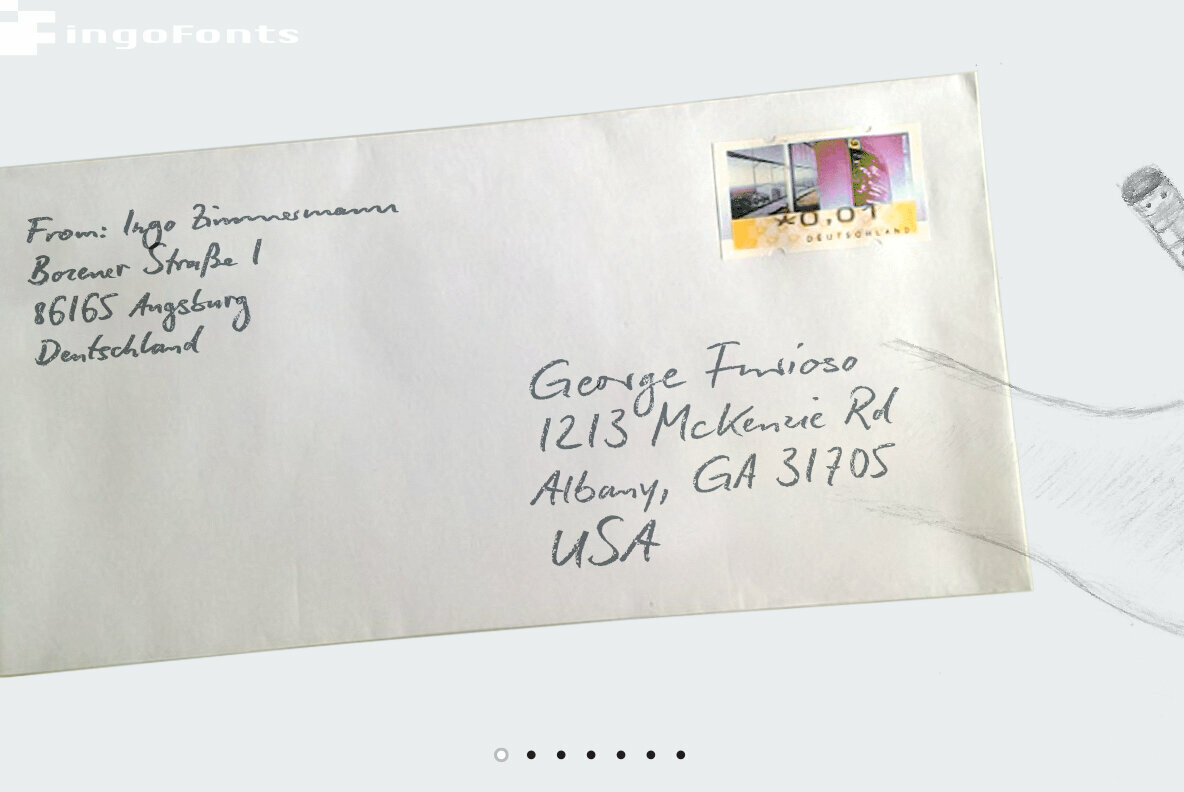 ingoFonts
From: Ingo Zimmermann
Bozener Straße 1
86165 Augsburg
Deutschland
*0,01
DEUTSCHLAND
George Furioso
1213 McKenzie Rd
Albany, GA 31705
USA